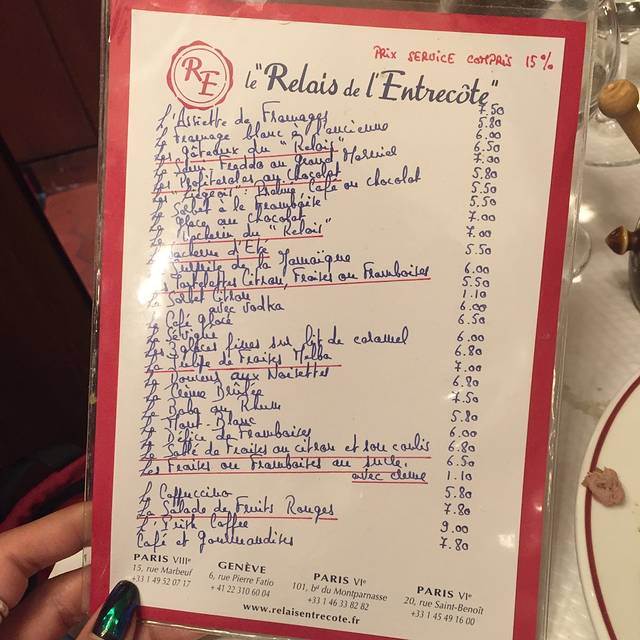 PRIX SERVICE COMPRIS 15%
RE
le "Relais de l'Entrecôte"
L'Assiette de Fromages 7.50
Le Fromage blanc à l'ancienne 5.80
Les gâteaux du "Relais" 6.00
Le Semi Freddo au Grand Marnier 6.50
Les Profiteroles au Chocolat 7.00
Les Liégeois: Praliné Café ou chocolat 5.80
Le Sorbet à la Framboise 5.50
La Glace au Chocolat 5.50
Le Vacherin du "Relais" 7.00
Le Vacherin d'Eté 7.00
La Surprise de la Jamaïque 5.50
Les Tartelettes Citron, Fraises ou Framboises 6.00
Le Sorbet Citron 5.50
avec vodka 1.10
Le Café glacé 6.00
La Sévigné 6.50
Les 3 glaces fines sur lit de caramel 6.00
La Tulipe de Fraises Melba 6.80
Le Douceur aux Noisettes 7.00
La Crème Brûlée 6.80
Le Baba au Rhum 7.50
Le Mont-Blanc 5.80
Le Délice de Framboises 6.00
Le Sablé de Fraises au citron et son coulis 6.80
Les Fraises ou Framboises au sucre 6.50
avec crème 1.10
Le Cappuccino 5.80
La Salade de Fruits Rouges 7.80
L'Irish Coffee 9.00
Café et Gourmandises 7.80
PARIS VIIIe
15, rue Marbeuf
+33 1 49 52 07 17
GENÈVE
6, rue Pierre Fatio
+ 41 22 310 60 04
PARIS VIe
101, bd du Montparnasse
+33 1 46 33 82 82
PARIS VIe
20, rue Saint-Benoît
+33 1 45 49 16 00
www.relaisentrecote.fr